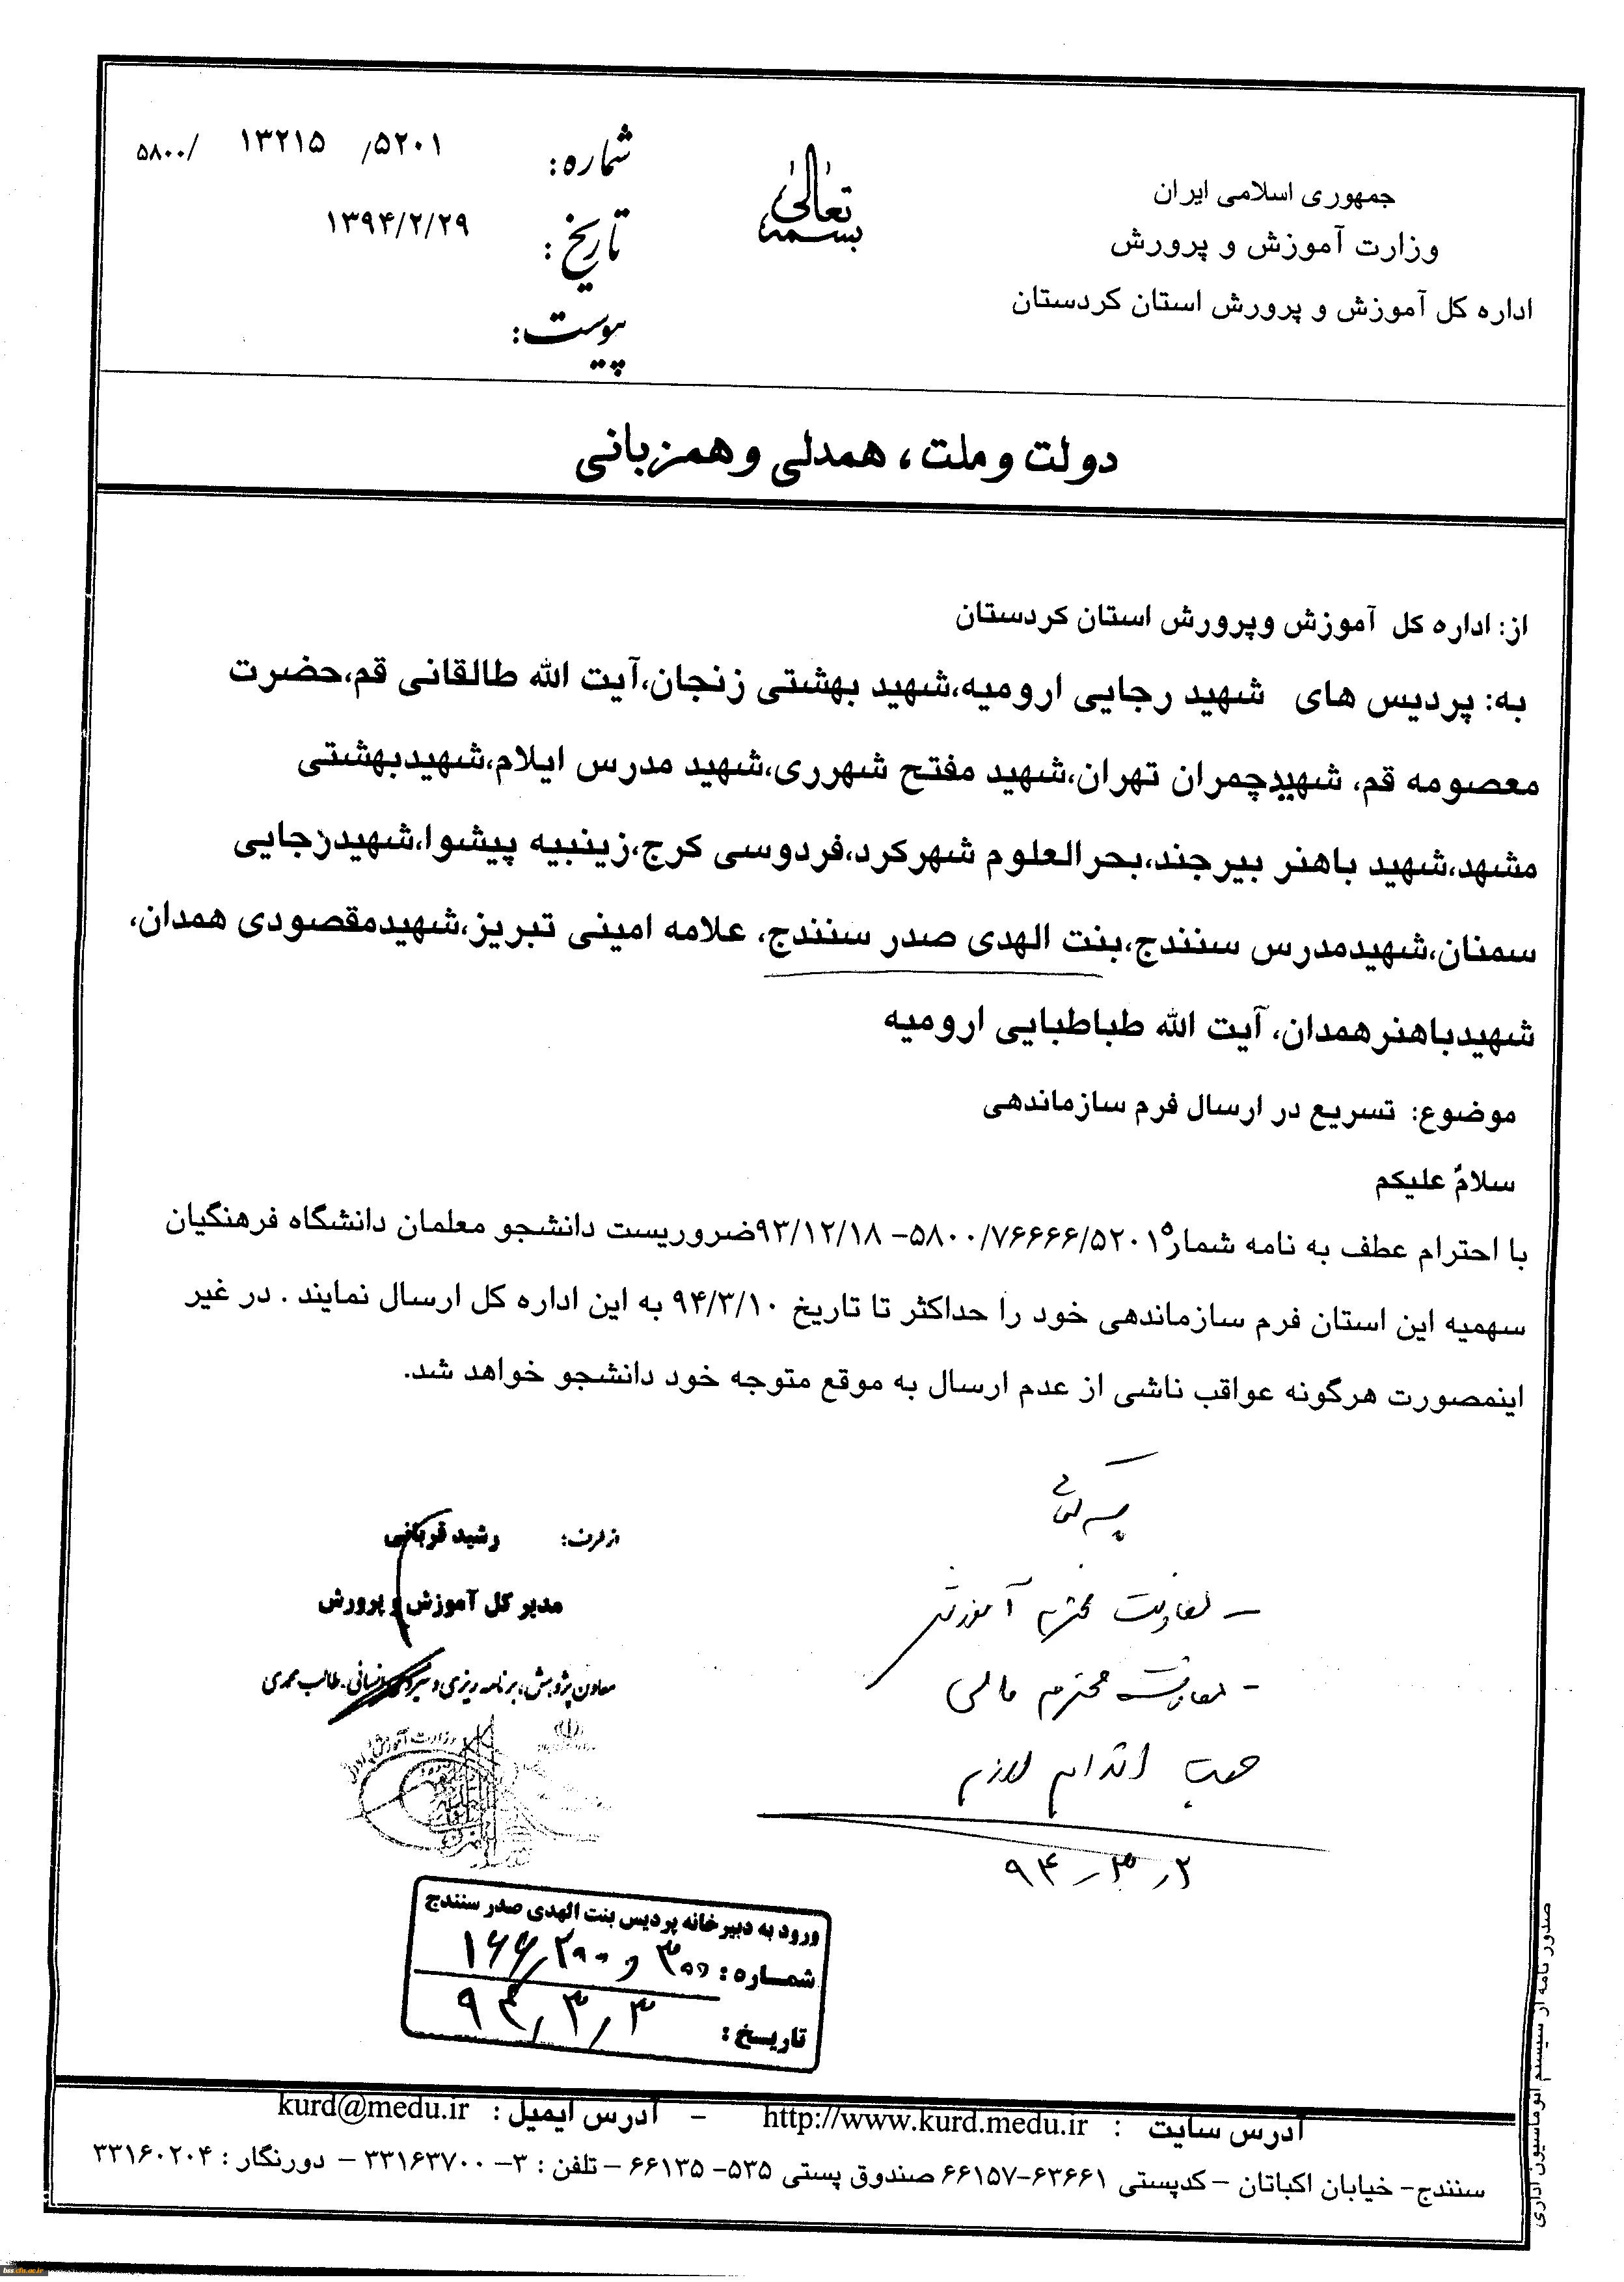 جمهوری اسلامی ایران
وزارت آموزش و پرورش
اداره کل آموزش و پرورش استان کردستان
بسمه تعالی
شماره: ۵۸۰۰/ ۱۳۲۱۵ /۵۲۰۱
تاریخ: ۱۳۹۴/۲/۲۹
پیوست:
دولت و ملت، همدلی و همزبانی
از: اداره کل آموزش وپرورش استان کردستان
به: پردیس های شهید رجایی ارومیه،شهید بهشتی زنجان،آیت الله طالقانی قم،حضرت
معصومه قم، شهیدچمران تهران،شهید مفتح شهرری،شهید مدرس ایلام،شهیدبهشتی
مشهد،شهید باهنر بیرجند،بحرالعلوم شهرکرد،فردوسی کرج،زینبیه پیشوا،شهیدرجایی
سمنان،شهیدمدرس سنندج،بنت الهدی صدر سنندج، علامه امینی تبریز،شهیدمقصودی همدان،
شهیدباهنرهمدان، آیت الله طباطبایی ارومیه
موضوع: تسریع در ارسال فرم سازماندهی
سلامٌ علیکم
با احترام عطف به نامه شماره۵۸۰۰/۷۶۶۶۶/۵۲۰۱- ۹۳/۱۲/۱۸ضروریست دانشجو معلمان دانشگاه فرهنگیان
سهمیه این استان فرم سازماندهی خود را حداکثر تا تاریخ ۹۴/۳/۱۰ به این اداره کل ارسال نمایند . در غیر
اینمصورت هرگونه عواقب ناشی از عدم ارسال به موقع متوجه خود دانشجو خواهد شد.
از طرف: رشید قربانی
مدیر کل آموزش و پرورش
معاون پژوهش، برنامه ریزی و نیروی انسانی-طالب محمدی
وزارت آموزش و پرورش
- معاونت محترم آموزشی
- معاونت محترم مالی
جهت اقدام لازم
۹۴-۳-۲
ورود به دبیرخانه پردیس بنت الهدی صدر سنندج
شماره: ۱۶۶/۲۰۰ و ۳۰۰
تاریخ: ۹۴/۳/۳
آدرس سایت : http://www.kurd.medu.ir - آدرس ایمیل : kurd@medu.ir
سنندج- خیابان اکباتان -کدپستی ۶۳۶۶۱-۶۶۱۵۷ صندوق پستی ۵۳۵- ۶۶۱۳۵ -تلفن : ۳- ۳۳۱۶۳۷۰۰ - دورنگار : ۳۳۱۶۰۲۰۴
صدور نامه از سیستم اتوماسیون اداری